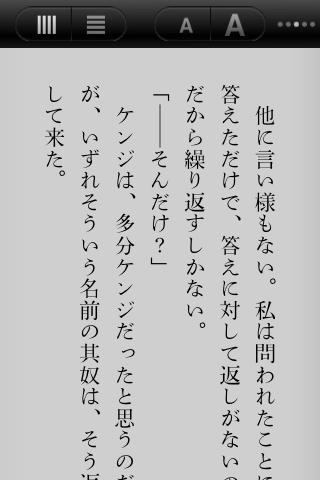 A A
他に言い様もない。私は問われたことに
答えただけで、答えに対して返しがないの
だから繰り返すしかない。
「――そんだけ？」
ケンジは、多分ケンジだったと思うのだ
が、いずれそういう名前の其奴は、そう返
して来た。